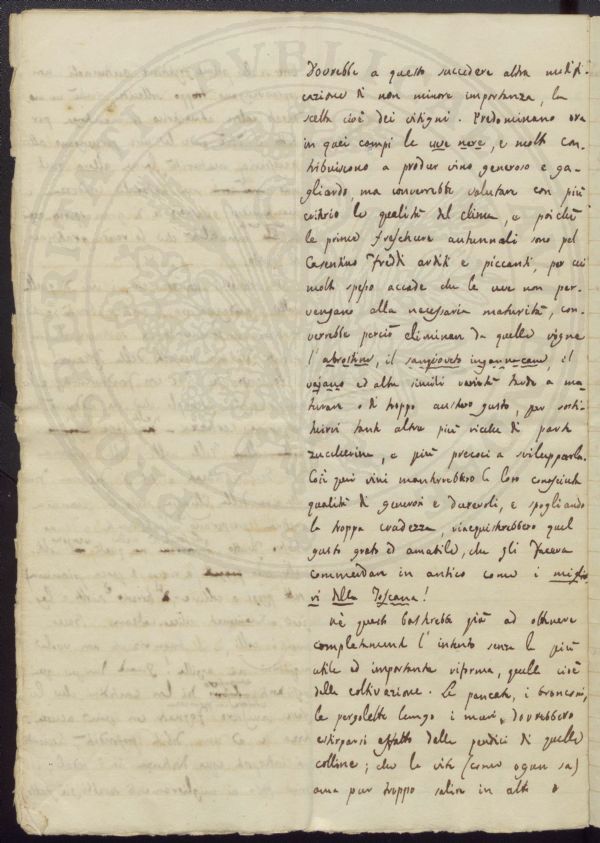 Dovrebbe a questo succedere altra modifi-
cazione di non minore importanza, la
scelta cioè dei vitigni. Predominano ora
in quei campi le uve nere, e molti con-
tribuiscono a produr vino generoso e ga-
gliardo, ma converrebbe valutare con più
criterio le qualità del clima, e poichè
le prime frescure autunnali sono pel
Casentino freddi arditi e piccanti, per cui
molto spesso accade che le uve non per-
vengano alla necessaria maturità, con-
verrebbe perciò eliminare da quelle vigne
l'abrostino, il sangioveto inganna cane, il
vajano ed altre simili varietà tarde a ma-
turare o di troppo austero gusto, per sosti-
tuirvi tante altre più ricche di parte
zuccherina, e più precoci a svilupparla.
Così quei vini manterrebbero la loro conosciuta
qualità di generosi e durevoli, e spogliando
la troppa crudezza, riacquistrebbero quel
gusto grato ed amabile, che gli faceva
commendare in antico come i miglio
ri della Toscana!
Nè questo basterebbe già ad ottenere
completamente l'intento senza la più
utile ed importante riforma, quella cioè
della coltivazione. Le pancate, i bronconi,
le pergolette lungo i muri, dovrebbero
estirparsi affatto dalle pendici di quelle
colline; che la vite (come ognun sa)
ama pur troppo salire in alto e